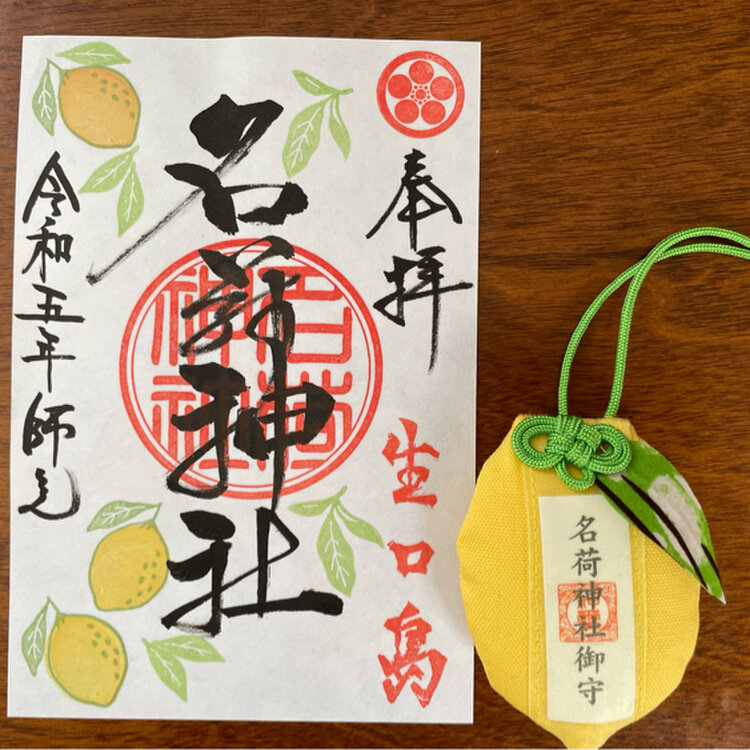 奉拝
生口島
名荷神社
名荷
神社
令和五年師走
名荷神社御守